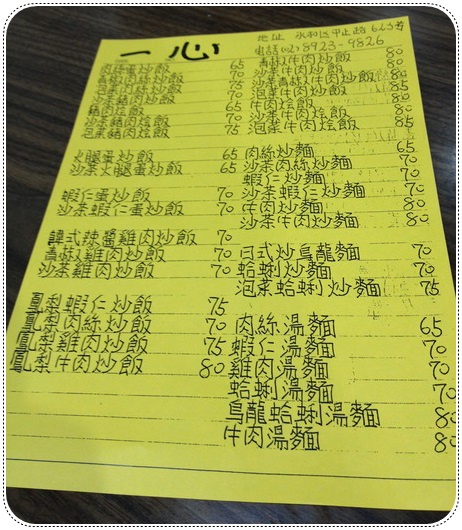 一心
地址 永和区中正路623号
電話(02)8923-9826
肉絲蛋炒飯 65
青椒肉絲炒飯 70
泡菜肉絲炒飯 75
沙茶豬肉炒飯 70
豬肉烩飯 65
沙茶豬肉烩飯 70
泡菜豬肉烩飯 75
火腿蛋炒飯 65
沙茶火腿蛋炒飯 65
蝦仁蛋炒飯 70
沙茶蝦仁蛋炒飯 70
韓式辣醬雞肉炒飯 70
青椒雞肉炒飯 70
沙茶雞肉炒飯 70
鳳梨蝦仁炒飯 75
鳳梨肉絲炒飯 70
鳳梨雞肉炒飯 75
鳳梨牛肉炒飯 80
青椒牛肉炒飯 80
沙茶牛肉炒飯 80
沙茶青椒牛肉炒飯
泡菜牛肉炒飯 85
牛肉烩飯 80
沙茶牛肉烩飯 80
泡菜牛肉烩飯 85
肉絲炒麵 65
沙茶肉絲炒麵 70
蝦仁炒麵 70
沙茶蝦仁炒麵 70
牛肉炒麵 80
沙茶牛肉炒麵 80
日式炒烏龍麵 70
蛤蜊炒麵 70
泡菜蛤蜊炒麵 75
肉絲湯麵 65
蝦仁湯麵 70
雞肉湯麵 70
蛤蜊湯麵 70
烏龍蛤蜊湯麵 80
牛肉湯麵 80